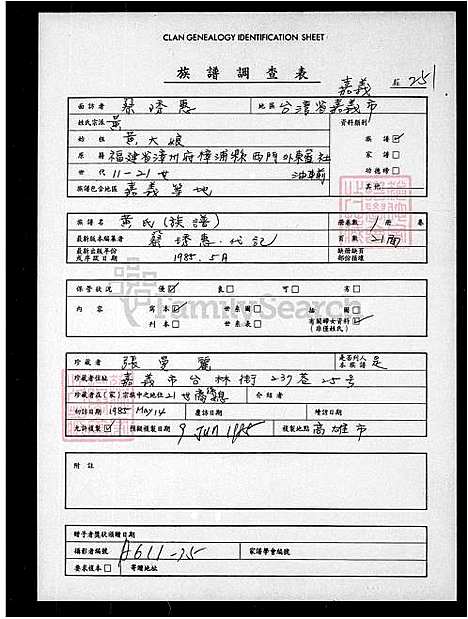 CLAN GENEALOGY IDENTIFICATION SHEET
族譜調查表
嘉義 251
面訪者 蔡 惠 地區 台灣省嘉義市
姓氏宗派 黃 資料類別
始祖 黃大娘 族譜☑
原籍 福建省漳州府樟浦縣西門外東 社 家譜□
世代 11-21世 功德榜□
族譜包含地區 嘉義等地 其他
族譜名 黃氏(族譜) 册卷數 1册 卷
最新版本編纂者 蔡 惠 代記 頁數 21面
最新出版年份 或序跋日期 1985.5月 缺冊缺頁 部份描述
保管狀況 優☑ 良□ 可□ 劣□
內容 寫本☑ 世系圖□ 插圖□
刊本□ 世系表□ 有關婦女資料☑ (非僅姓氏)
FamilySearch
珍藏者 張曼麗 是否列入本族譜 是
珍藏者住址 嘉義市台林街237巷25号
珍藏者在(家)宗族中之地位 21世 介紹者
初訪日期 1985 May 14 覆訪日期 增訪日期
允許複製☑ 預擬複製日期 9 Jun 1985 複製地點 高雄市
附註
贈予者獎狀頒贈日期
攝影者編號 A611-25 家譜學會編號
要求複本□ 寄贈地址